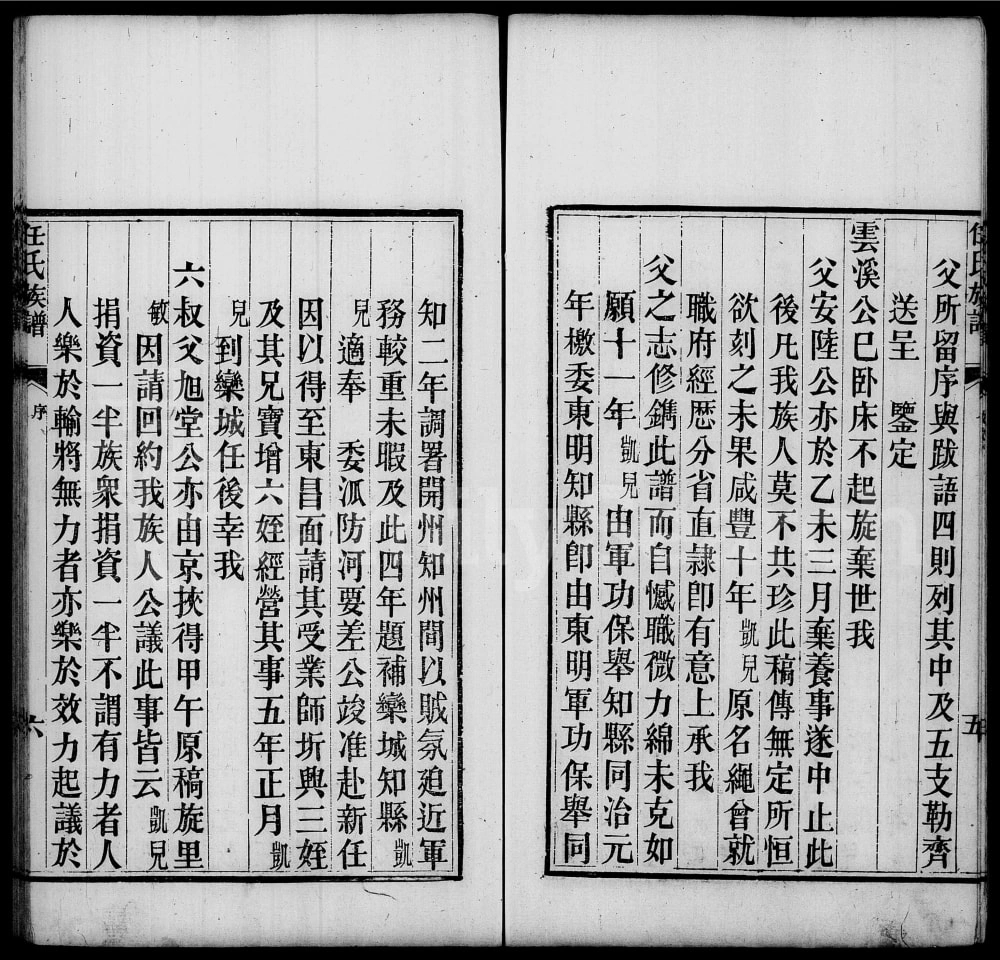 任氏族譜
五
父所留序與跋語四則列其中及五支勒齊
送呈　鑒定
雲溪公已卧床不起旋棄世我
父安陸公亦於乙未三月棄養事遂中止此
後凡我族人莫不共珍此稿傳無定所恒
欲刻之未果咸豐十年凱兒原名繩曾就
職府經歷分省直隷卽有意上承我
父之志修鐫此譜而自憾職微力綿未克如
願十一年凱兒由軍功保舉知縣同治元
年檄委東明知縣卽由東明軍功保舉同
知二年調署開州知州間以賊氛廹近軍
務較重未暇及此四年題補欒城知縣凱
兒適奉　委泒防河要差公竣准赴新任
因以得至東昌面請其受業師圻與三姪
及其兄寶增六姪經營其事五年正月凱
兒到欒城任後幸我
六叔父旭堂公亦由京挾得甲午原稿旋里
敏因請回約我族人公議此事皆云凱兒
捐資一半族衆捐資一半不謂有力者人
人樂於輸將無力者亦樂於效力起議於
任氏族譜
序
六